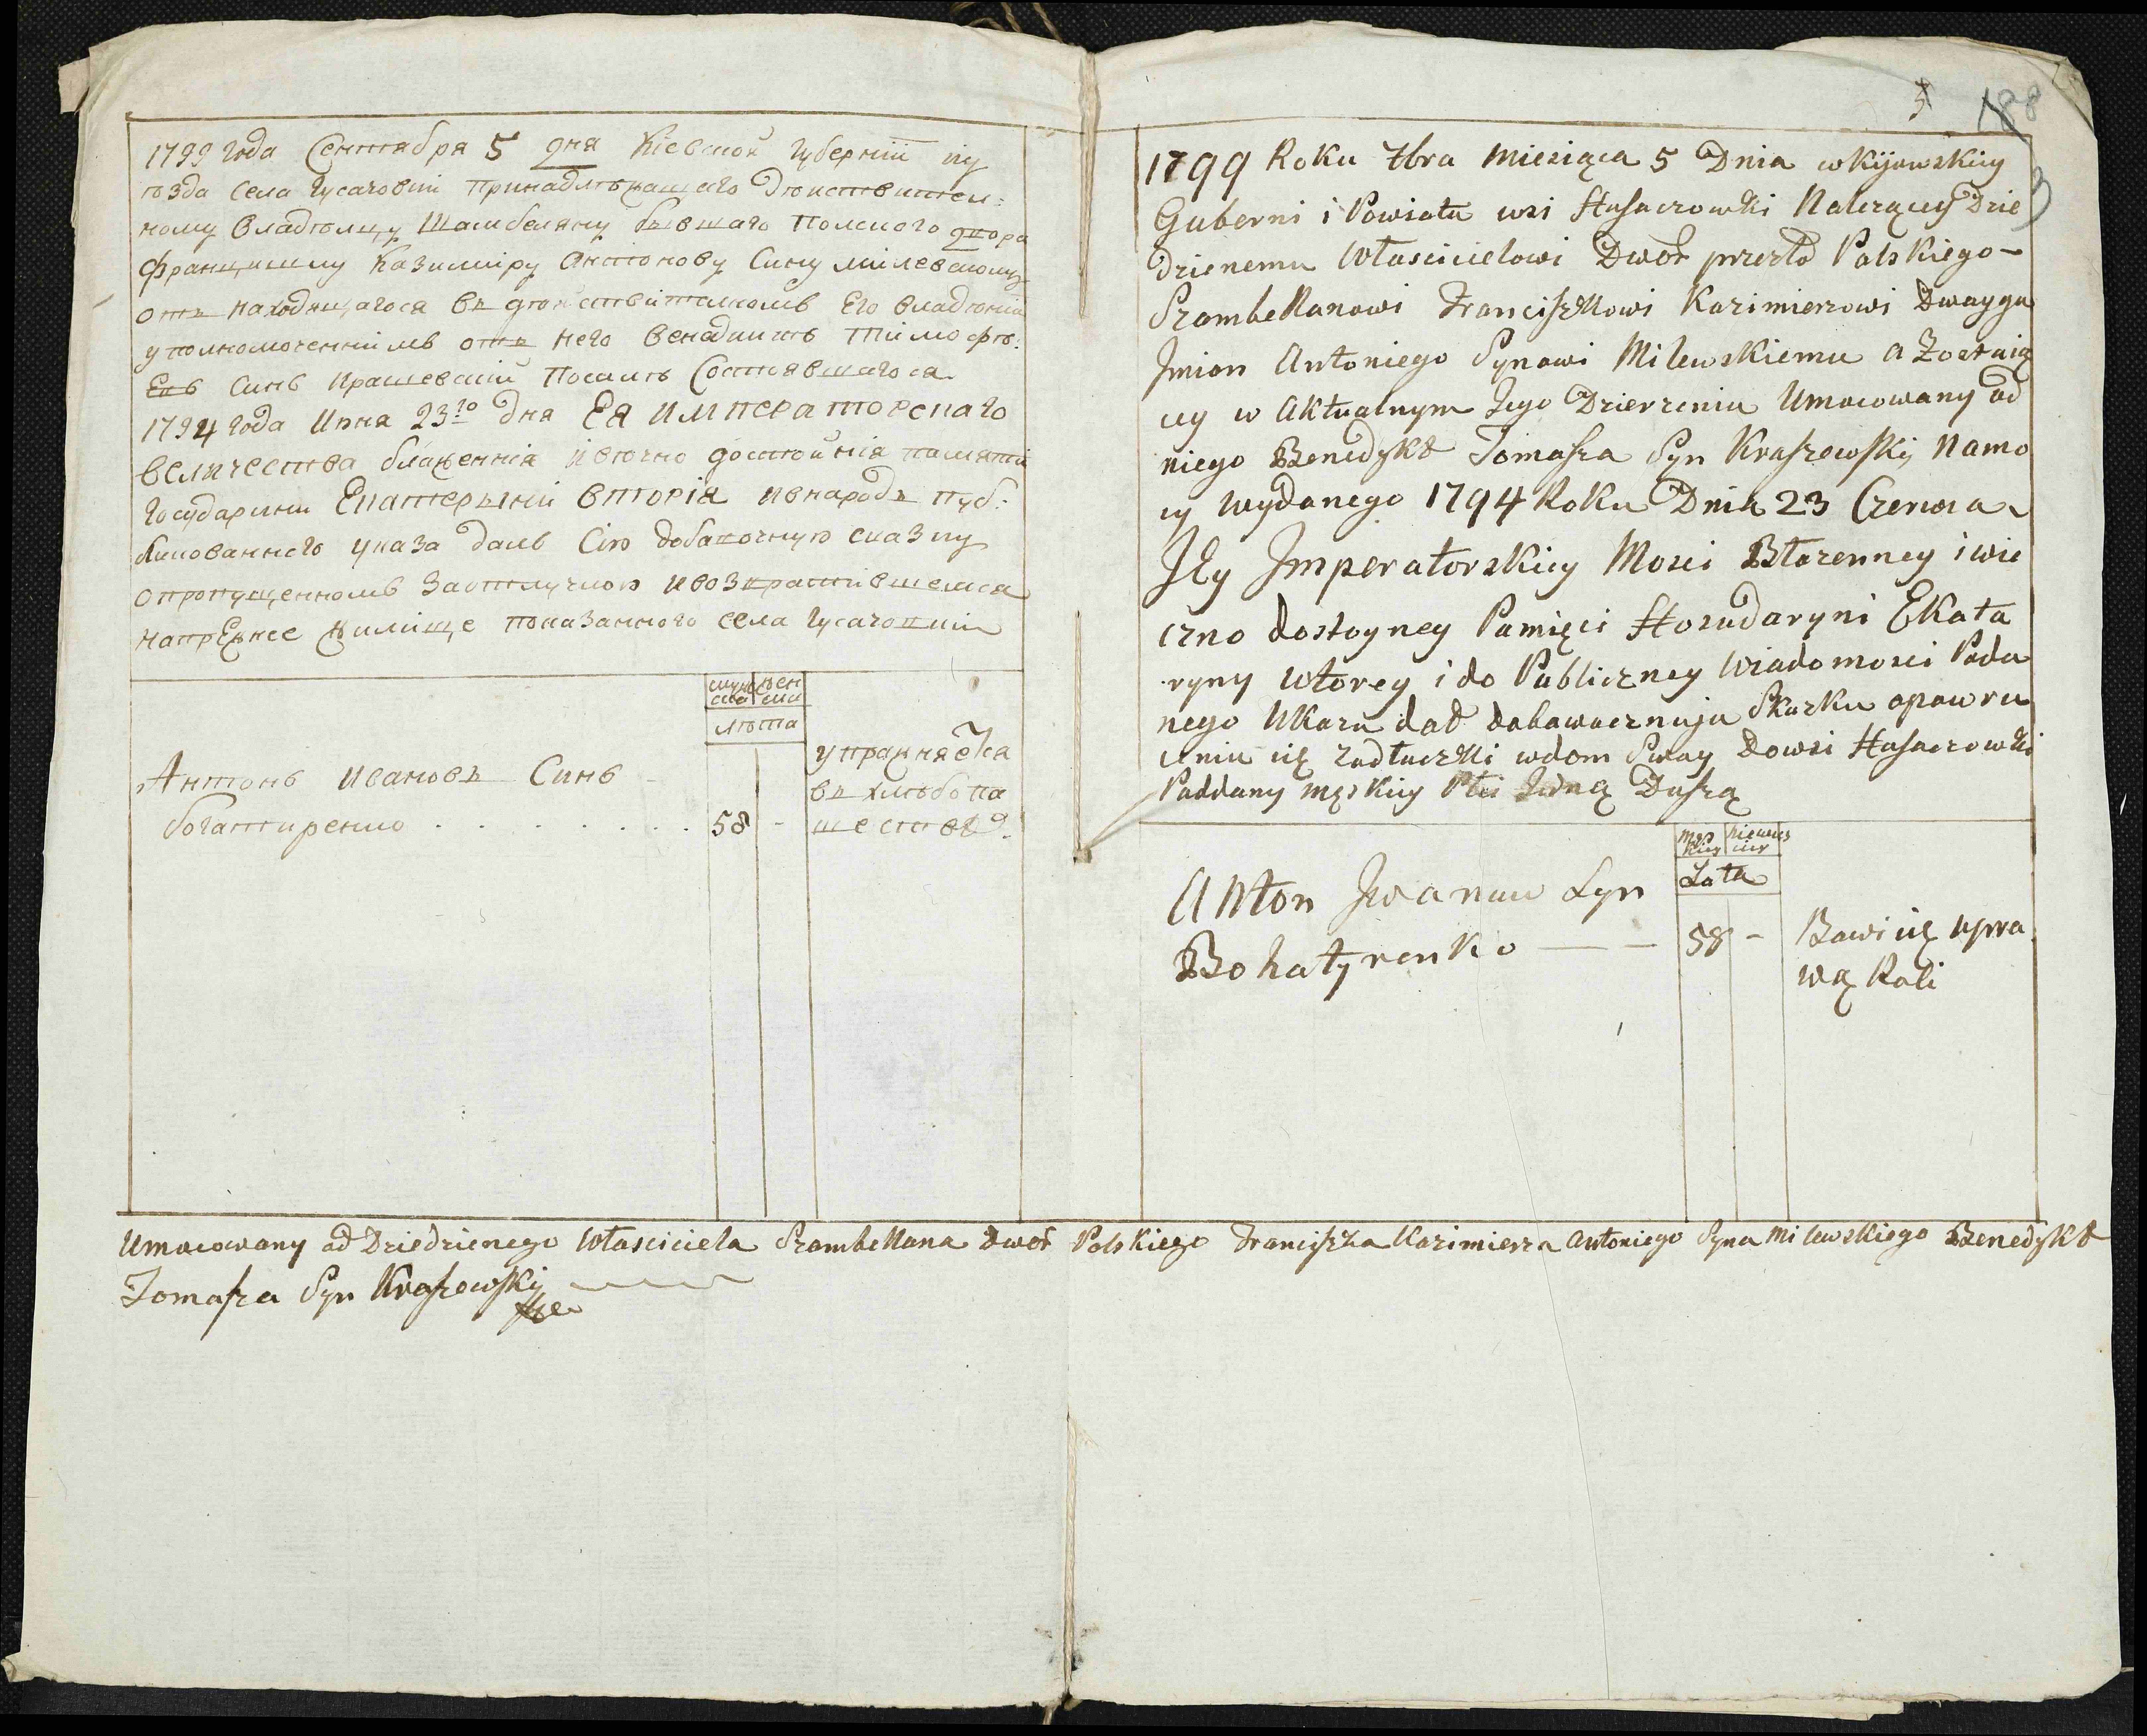 1799 года Сентября 5 дня Кіевской Губерніи и у
ѣзда села Гусачовки принадлѣжащаго дѣйствител:
ному владѣлцу Шамбеляну бывшаго Полского двора
Францишку Казимиру Антонову сину Милевскому
отъ находящагося въ дѣйствителномъ Его владѣніи
уполномоченнимъ отъ него Венадиктъ Тимофѣ:
Евъ синъ Крашевскій посилѣ Состоявшагося
1794 года Июня 23го дня Ея Императорскаго
величества блаженнія и вѣчно достойнія памяти
Государини Екатерыни вторія и в народъ пуб:
ликованнего указа далъ Сію добавочную сказку
о пропущенномъ за отлучкою и возвратившемся
на прЕжнее жилище показанного села Гусачовки
муж жен
ска ски
лѣта
Антонъ Ивановъ Синъ
богатиренко . . . . . . . 58 -
упражняется
въ хлѣбопа
шествѣ
5 188
3
1799 Roku 7bra Miesiąca 5 Dnia w Kijowskiey
Guberni i Powiatu wsi Husaczowki Nalezącey Dzie
dzienemu Włascicielowi Dwor przeszło Polskiego –
Szambellanowi Franciszkowi Kazimierzowi Dwoyga
Jmion Antoniego Synowi Milewskiemu a Zostaią
cy w Aktualnym Jego Dzierzeniu Umocowany od
niego Benedykt Tomasza Syn Kraszewskij Namo
cy wydanego 1794 Roku Dnia 23 Czerwca
Jey Jmperatorskiey Mosci Błazenney i wie
czno dostoyney Pamięci Hosudaryni Ekata
ryny wtorey i do Publiczney Wiadomosci Poda
nego Ukazu dał dobawocznuju Skazku o powru
ceniu się z odłuczki w dom Swoy Do wsi Husaczowki
Poddany męskiey Płci Jedną Duszą
męs niewies
kiey ciey
Lata
Anton Jwanow Syn
Bohatyrenko — — 58 –
Bawi się upra
wą Roli
Umocowany od Dziedzicnego Własciciela Szambellana Dwor Polskiego Franciszka Kazimierza Antoniego Syna Milewskiego Benedykt
Tomasza Syn Kraszewskij